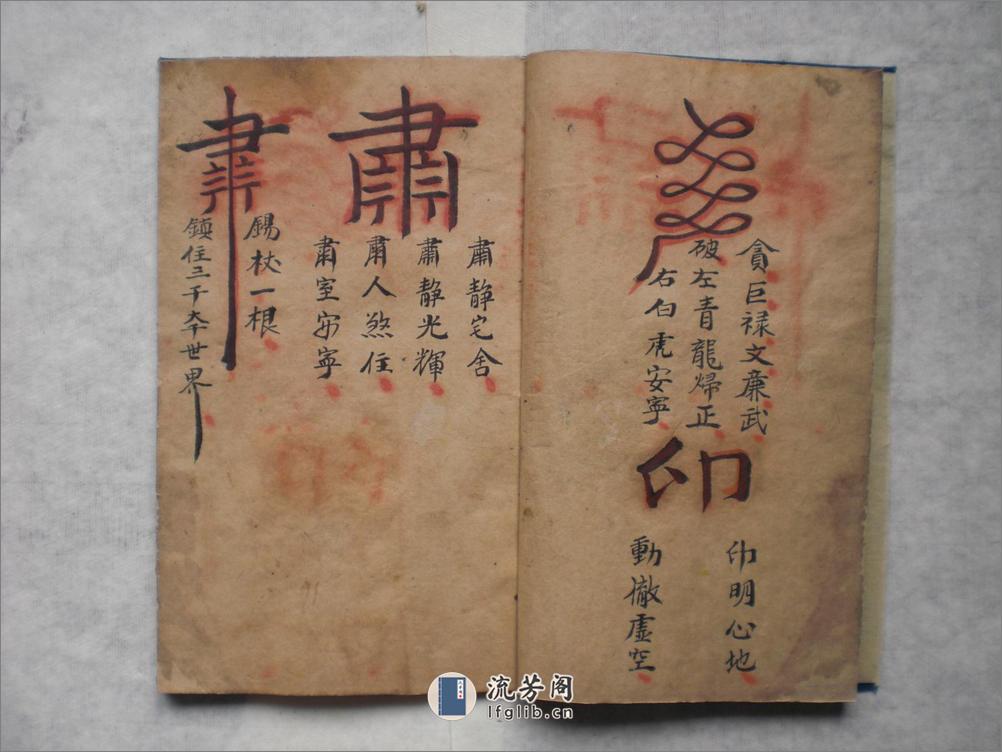 貪巨禄文廉武
破左青龍歸正
右白虎安寧
印
印明心地
動徹虛空
肅
肅靜宅舍
肅靜光輝
肅人煞住
肅室安寧
錫杖一根
鎮住三千大千世界
流芳阁
lfglib.cn